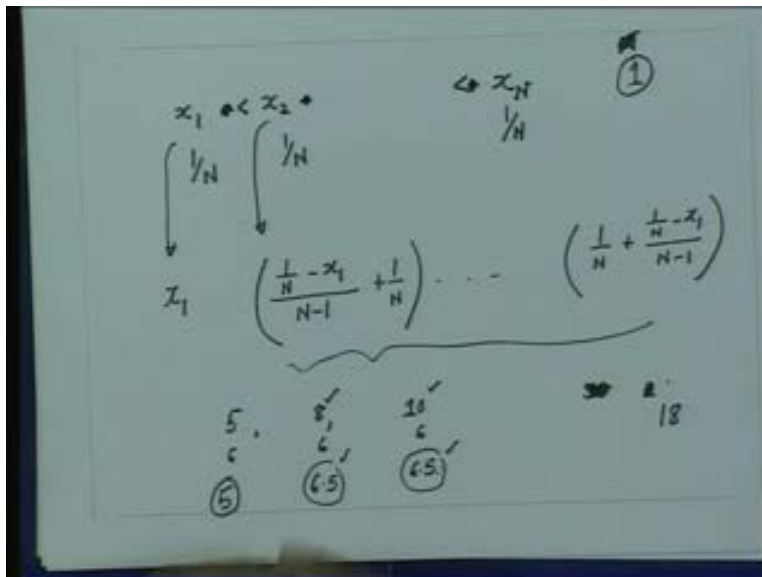 ①
x₁ < x₂ < x_N
1/N 1/N 1/N
x₁ ((1/N - x₁)/(N-1) + 1/N) . . . - (1/N + (1/N - x₁)/(N-1))
5, 8, ✓ 10 ✓ 18
6 6 6
⑤ 6.5 ✓ 6.5 ✓